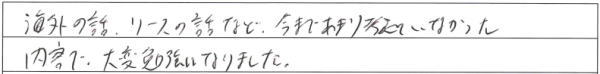 海外の話、リースの話など、今まであまり考えていなかった
内容で、大変勉強になりました。